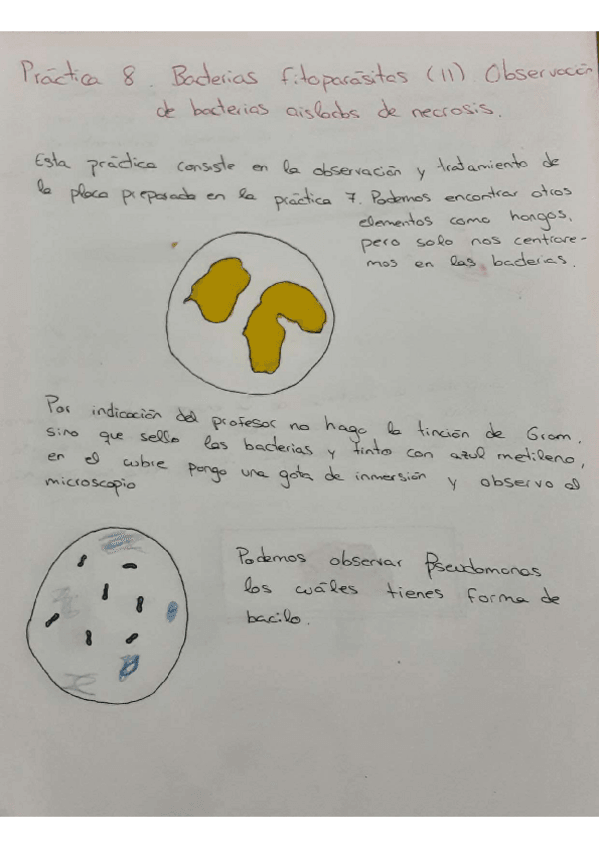 Práctica 8. Bacterias fitoparásitas (II) Observación
de bacterias aisladas de necrosis.
Esta práctica consiste en la observación y tratamiento de
la placa preparada en la práctica 7. Podemos encontrar otros
elementos como hongos,
pero solo nos centrare-
mos en las bacterias.
Por indicación del profesor no hago la tinción de Gram,
sino que sello las bacterias y tinto con azul metileno,
en el cubre pongo una gota de inmersión y observo al
microscopio
Podemos observar Pseudomonas
los cuáles tienes forma de
bacilo.